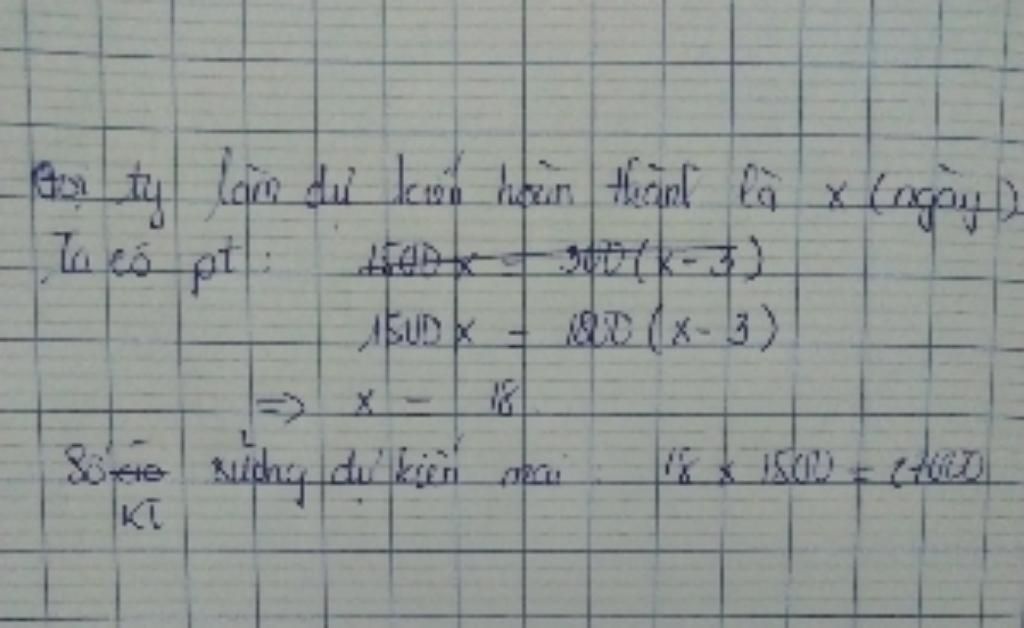 Gọi ty làm dự kiến hoàn thành là x (ngày)
Ta có pt: 1500x = 300(x-3)
1500x = 1800(x-3)
=> x = 18
Số xưởng dự kiến mai: 18 x 1500 = 27000
KI